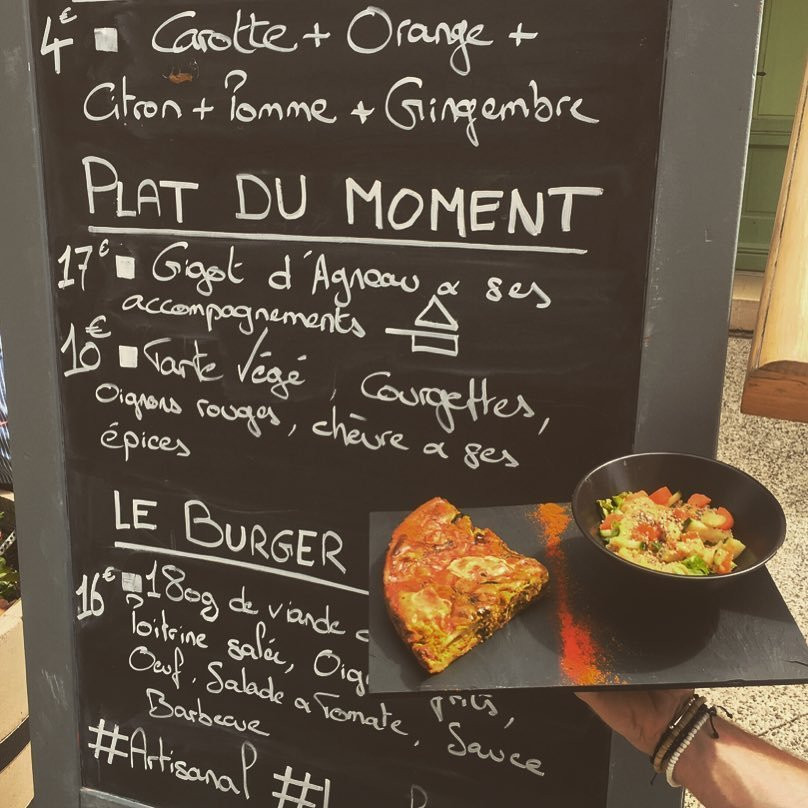 4€ Carotte + Orange +
Citron + Pomme + Gingembre
PLAT DU MOMENT
17€ Gigot d'Agneau & ses
accompagnements
10€ Tarte Végé, Courgettes,
Oignons rouges, chèvre & ses
épices
LE BURGER
16€ 180g de viande
Poitrine salée,
Oeuf, Salade & Tomate, Sauce
Barbecue
#Artisanal #